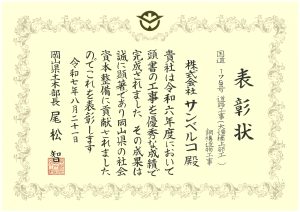 表彰状
国道179号 道路工事(大渡橋上部工)
鋼橋上部工事
株式会社 サンベルコ 殿
貴社は令和六年度において
頭書の工事を優秀な成績で
完成されました その成果は
誠に顕著であり岡山県の社会
資本整備に貢献されました
のでこれを表彰します
令和七年八月二十一日
岡山県土木部長 尾松 智